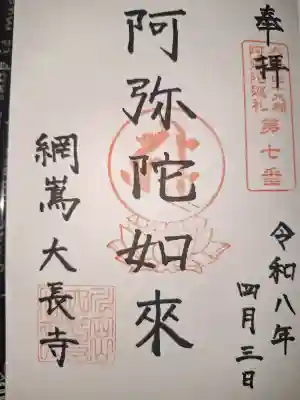 奉拝
第七番
阿弥陀如來
網嶌 大長寺
令和八年
四月三日